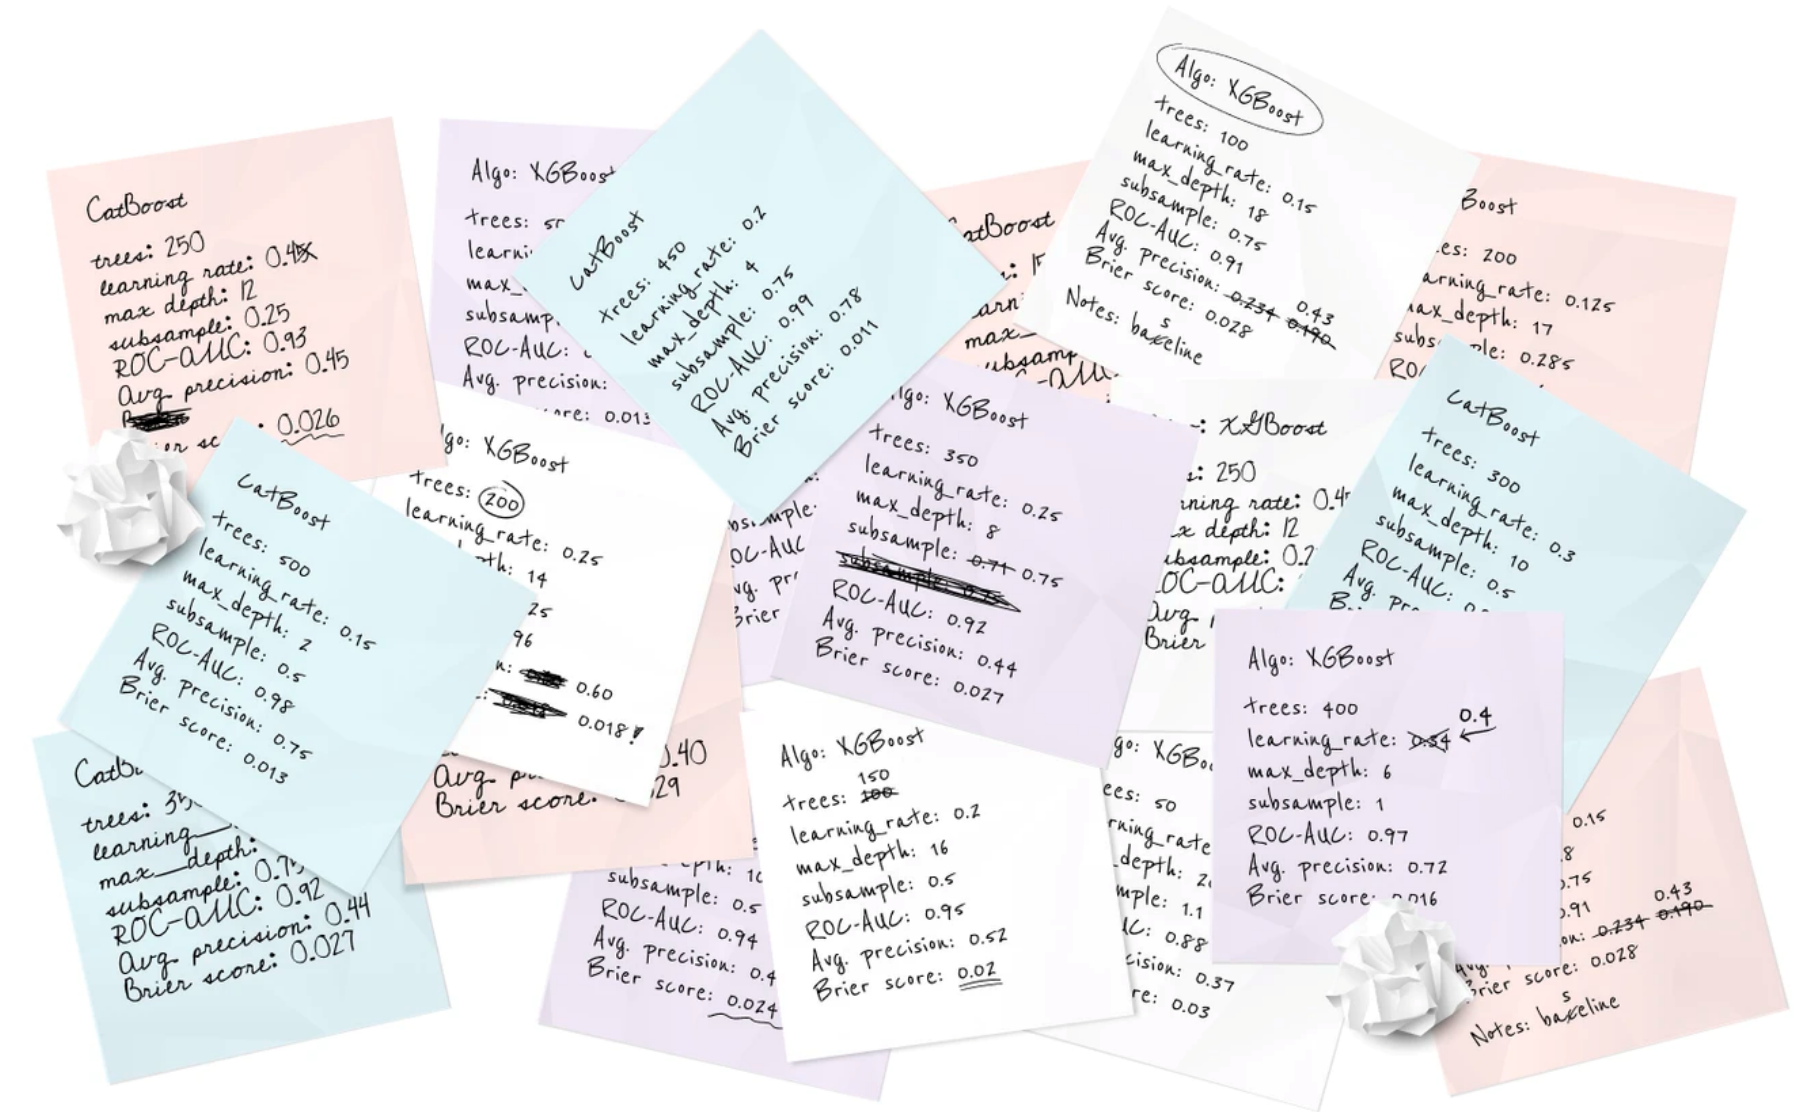 CatBoost
trees: 250
learning rate: 0.45
max depth: 12
subsample: 0.25
ROC-AUC: 0.93
Avg. precision: 0.45
0.026
Algo: XGBoost
trees:
ROC-AUC:
Avg. precision:
0.013
CatBoost
trees: 450
learning_rate: 0.2
max_depth: 4
subsample: 0.75
ROC-AUC: 0.99
Avg. precision: 0.78
Brier score: 0.011
Algo: XGBoost
trees: 100
learning_rate: 0.15
max_depth: 18
subsample: 0.75
ROC-AUC: 0.91
Avg. precision: 0.234 0.190 0.43
Brier score: 0.028
Notes: baseline
Boost
200
learning_rate: 0.125
max_depth: 17
0.285
CatBoost
trees: 500
learning_rate: 0.15
max_depth: 2
subsample: 0.5
ROC-AUC: 0.98
Avg. precision: 0.75
Brier score: 0.013
XGBoost
trees: 200
learning_rate: 0.25
14
0.60
0.018!
XGBoost
trees: 350
learning_rate: 0.25
max_depth: 8
subsample: 0.71 0.75
ROC-AUC: 0.92
Avg. precision: 0.44
Brier score: 0.027
XGBoost
250
rate:
depth: 12
ROC-AUC:
Avg.
Brier
CatBoost
trees: 300
learning_rate: 0.3
max_depth: 10
subsample: 0.5
ROC-AUC:
Avg.
trees:
subsample:
ROC-AUC: 0.92
Avg. precision: 0.44
Brier score: 0.027
0.40
Avg.
Brier score:
subsample: 0.5
ROC-AUC: 0.94
Avg. precision:
Brier score: 0.024
Algo: XGBoost
150
trees: 100
learning_rate: 0.2
max_depth: 16
subsample: 0.5
ROC-AUC: 0.95
Avg. precision: 0.52
Brier score: 0.02
50
1.1
0.88
0.37
0.03
Algo: XGBoost
trees: 400
0.4
learning_rate: 0.34
max_depth: 6
subsample: 1
ROC-AUC: 0.97
Avg. precision: 0.72
Brier score: 0.016
0.15
0.43
0.234 0.190
Brier score: 0.028
Notes: baseline